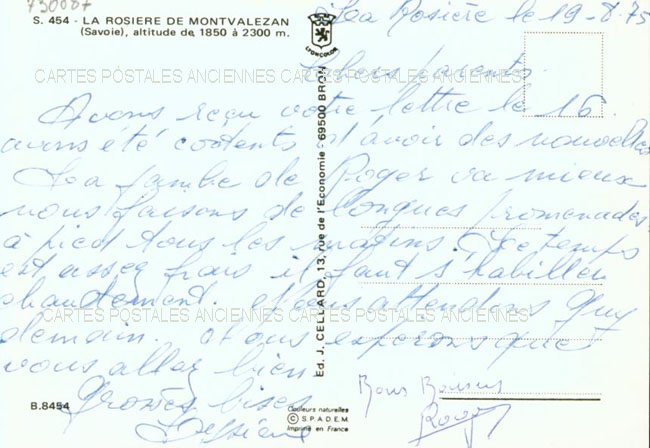 730087
S. 454 - LA ROSIERE DE MONTVALEZAN
(Savoie), altitude de 1850 à 2300 m.
LYONCOLOR
La Rosière le 19-8-75
CARTES POSTALES ANCIENNES CARTES POSTALES ANCIENNES
Chers parents
Avons reçu votre lettre le 16
avons été contents d'avoir des nouvelles
La jambe de Roger va mieux
nous faisons de longues promenades
à pied tous les matins. Le temps
est assez frais il faut s'habiller
chaudement. Nous attendons Guy
CARTES POSTALES ANCIENNES CARTES POSTALES ANCIENNES
demain. Nous espérons que
vous allez bien
Grosses bises
Bons Baisers
Roger
Ed. J. CELLARD, 13, rue de l'Economie - 69500 BRON
B.8454
Couleurs naturelles
© S.P.A.D.E.M.
Imprimé en France